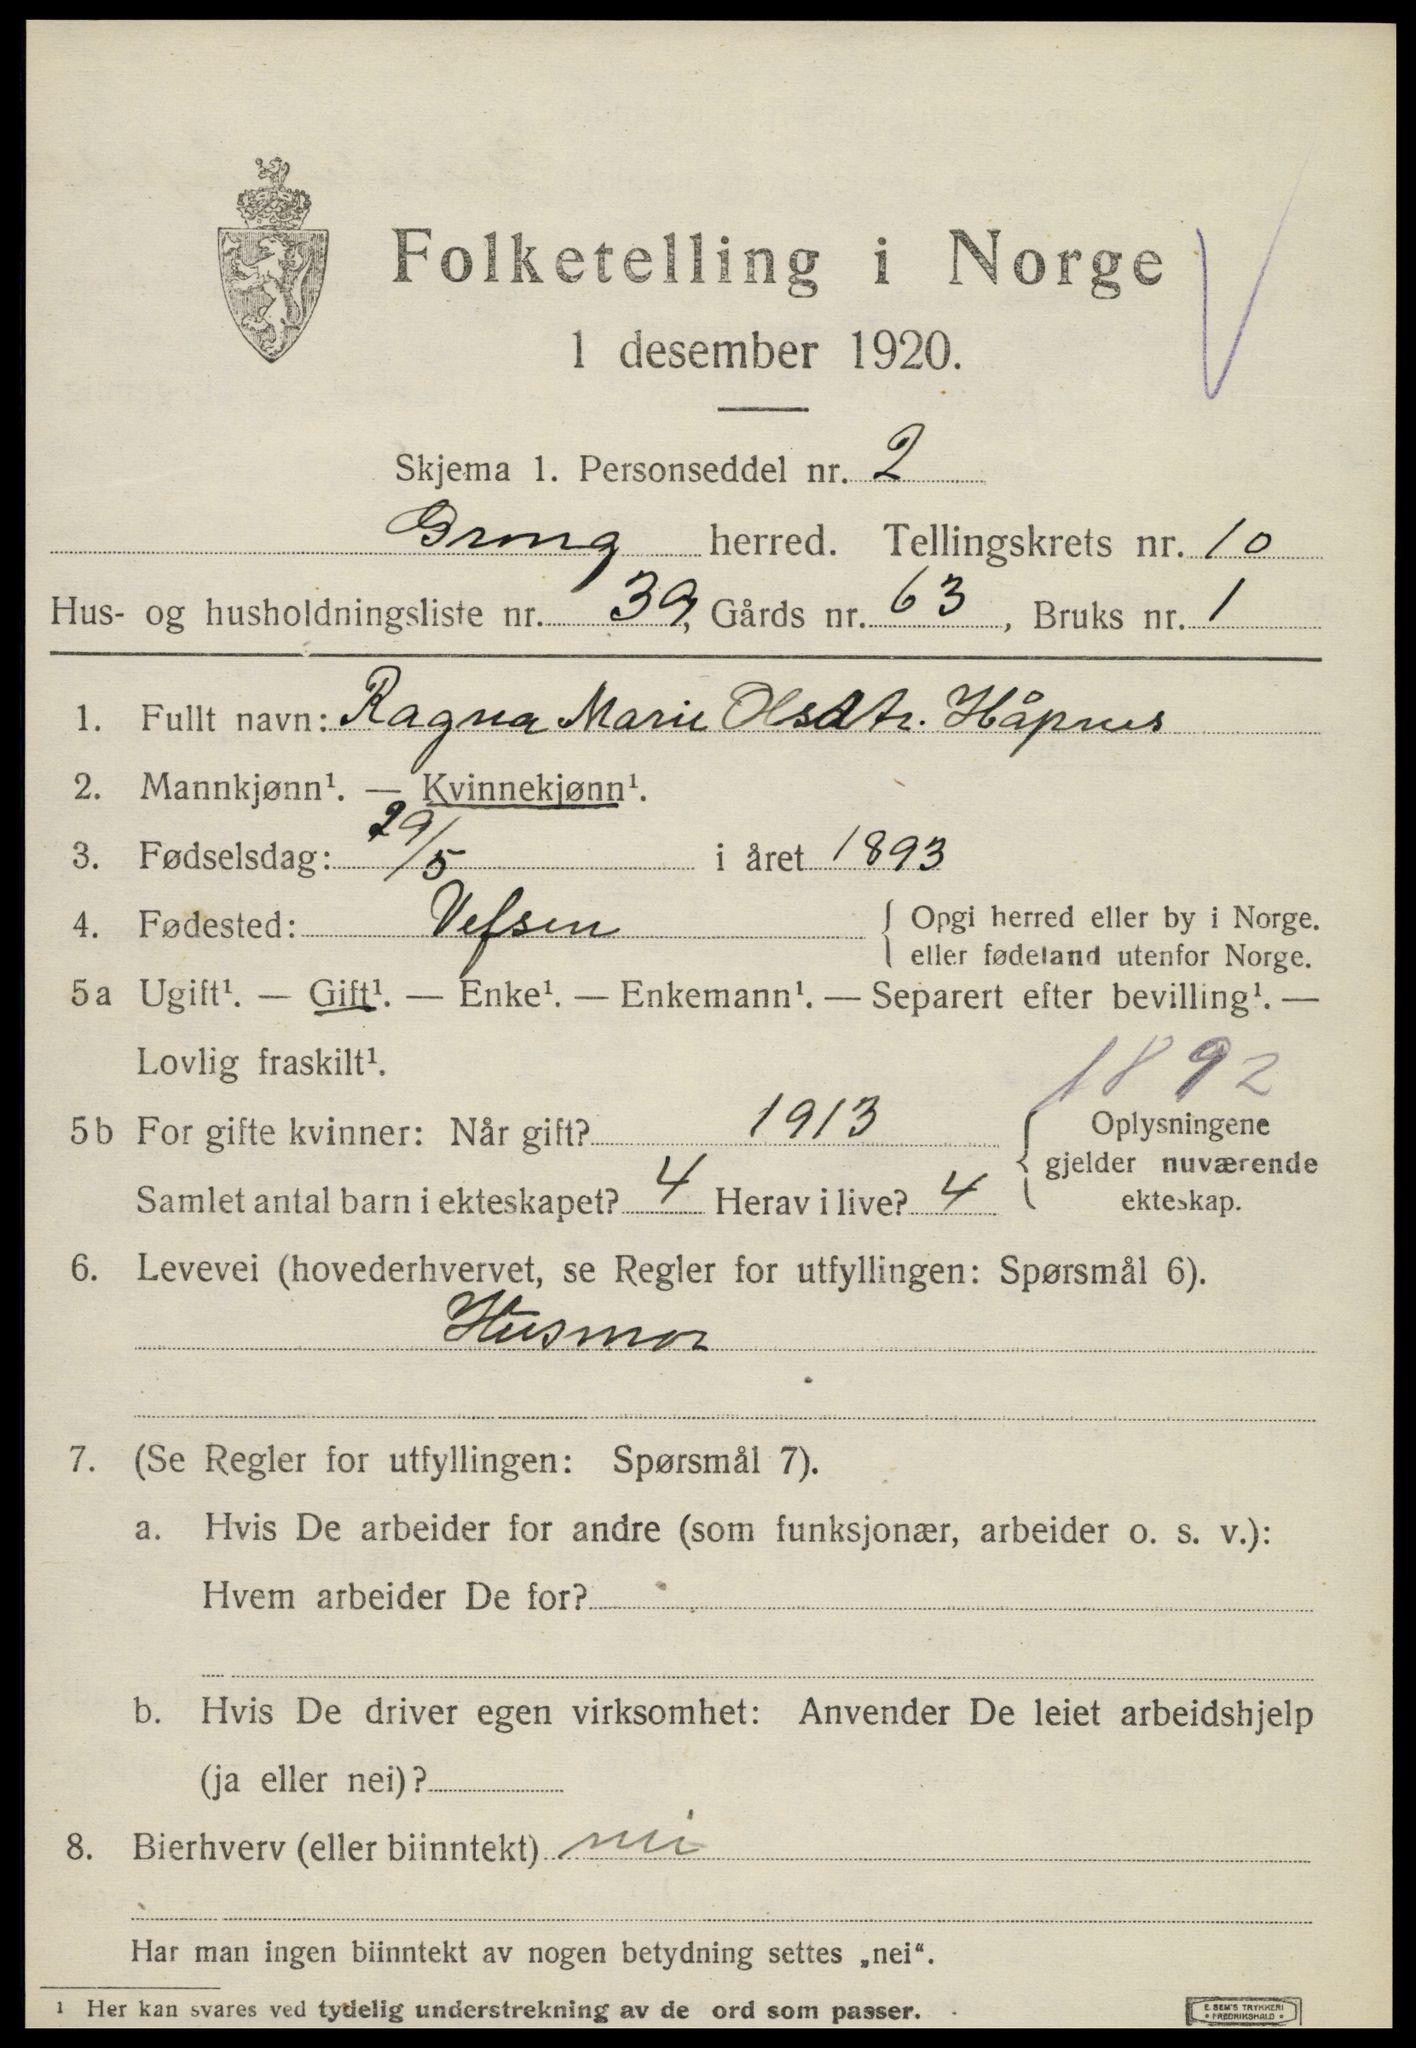 Folketelling i Norge
1 desember 1920.
Skjema 1. Personseddel nr. 2
Grong herred. Tellingskrets nr. 10
Hus- og husholdningsliste nr. 39, Gårds nr. 63, Bruks nr. 1
1. Fullt navn: Ragna Marie Olsdtr. Håpnes
2. Mannkjønn¹. — Kvinnekjønn¹.
3. Fødselsdag: 29/5 i året 1893
4. Fødested: Vefsen { Opgi herred eller by i Norge.
eller fødeland utenfor Norge.
5a Ugift¹. — Gift¹. — Enke¹. — Enkemann¹. — Separert efter bevilling¹. —
Lovlig fraskilt¹.
1892
5b For gifte kvinner: Når gift? 1913
Samlet antal barn i ekteskapet? 4 Herav i live? 4
{ Oplysningene
gjelder nuværende
ekteskap.
6. Levevei (hovederhvervet, se Regler for utfyllingen: Spørsmål 6).
Husmor
7. (Se Regler for utfyllingen: Spørsmål 7).
a. Hvis De arbeider for andre (som funksjonær, arbeider o. s. v.):
Hvem arbeider De for?
b. Hvis De driver egen virksomhet: Anvender De leiet arbeidshjelp
(ja eller nei)?
8. Bierhverv (eller biinntekt) nei
Har man ingen biinntekt av nogen betydning settes „nei“.
¹ Her kan svares ved tydelig understrekning av de ord som passer.
E. SEM'S TRYKKERI
• FREDRIKSHALD •